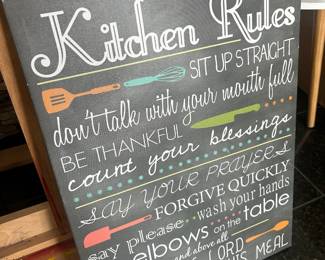 Kitchen Rules
SIT UP STRAIGHT
don't talk with your mouth full
BE THANKFUL
count your blessings
SAY YOUR PRAYERS
FORGIVE QUICKLY
say please wash your hands
elbows on the table
and above all
LORD
THIS MEAL